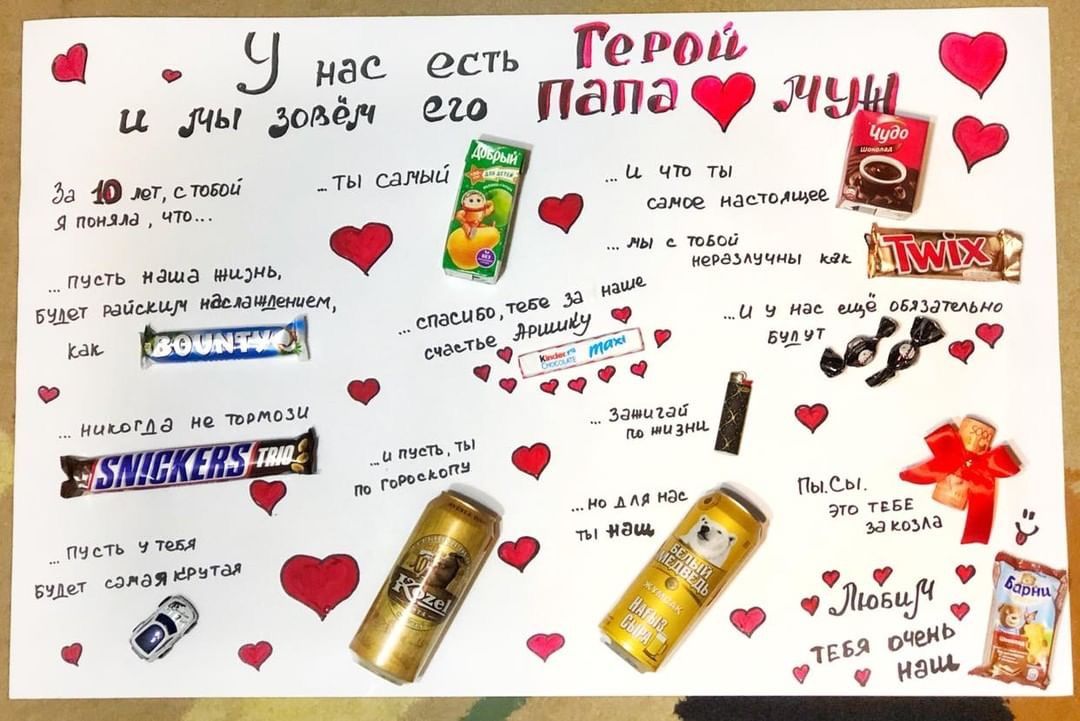 У нас есть Герой
и мы зовём его папа муж
За 10 лет, с тобой
я поняла, что...
...ты самый
Добрый
для детей
...и что ты
самое настоящее
Чудо
Шоколад
...мы с тобой
неразлучны как
TWIX
...пусть наша жизнь,
будет райским наслаждением,
как
BOUNTY
...спасибо, тебе за наше
счастье Аришку
Kinder
CHOCOLATE
maxi
...и у нас ещё обязательно
будут
...никогда не тормози
SNICKERS TRIO
...зажигай
по жизни
...и пусть, ты
по гороскопу
Kozel
...но для нас
ты наш
БЕЛЫЙ
МЕДВЕДЬ
ЖУМСАК
НАҒЫЗ
СЫРА
Пы.Сы.
это тебе
за козла
...пусть у тебя
будет самая крутая
Любим
тебя очень
наш
Барни